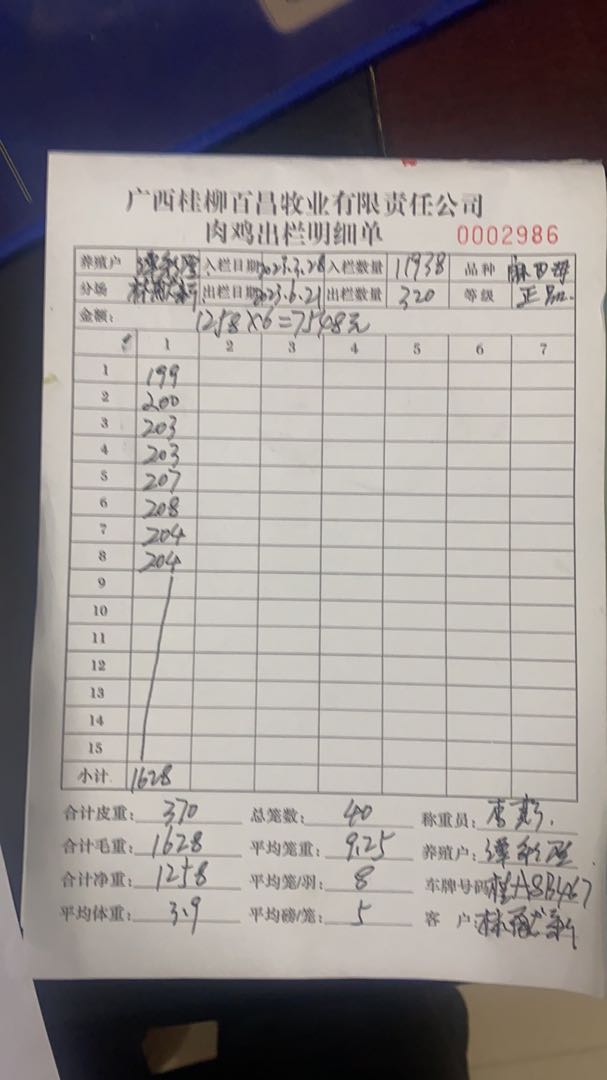 广西桂柳百昌牧业有限责任公司
肉鸡出栏明细单 0002986
养殖户 入栏日期 2023.3.28 入栏数量 11938 品种
分场 出栏日期 2023.6.21 出栏数量 320 等级 正品
金额: 1258×6=7548元
1 2 3 4 5 6 7
1 199
2 200
3 203
4 203
5 207
6 208
7 204
8 204
9
10
11
12
13
14
15
小计 1628
合计皮重: 370 总笼数: 40 称重员: 李
合计毛重: 1628 平均笼重: 9.25 养殖户:
合计净重: 1258 平均笼/羽: 8 车牌号码: 桂A8B467
平均体重: 3.9 平均磅/笼: 5 客 户: 林